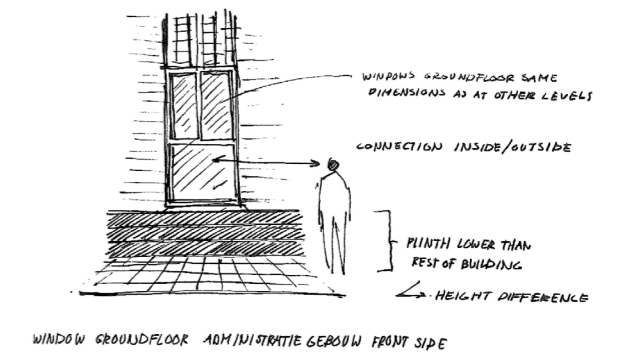 WINDOWS GROUNDFLOOR SAME
DIMENSIONS AS AT OTHER LEVELS
CONNECTION INSIDE/OUTSIDE
PLINTH LOWER THAN
REST OF BUILDING
HEIGHT DIFFERENCE
WINDOW GROUNDFLOOR ADMINISTRATIEGEBOUW FRONT SIDE